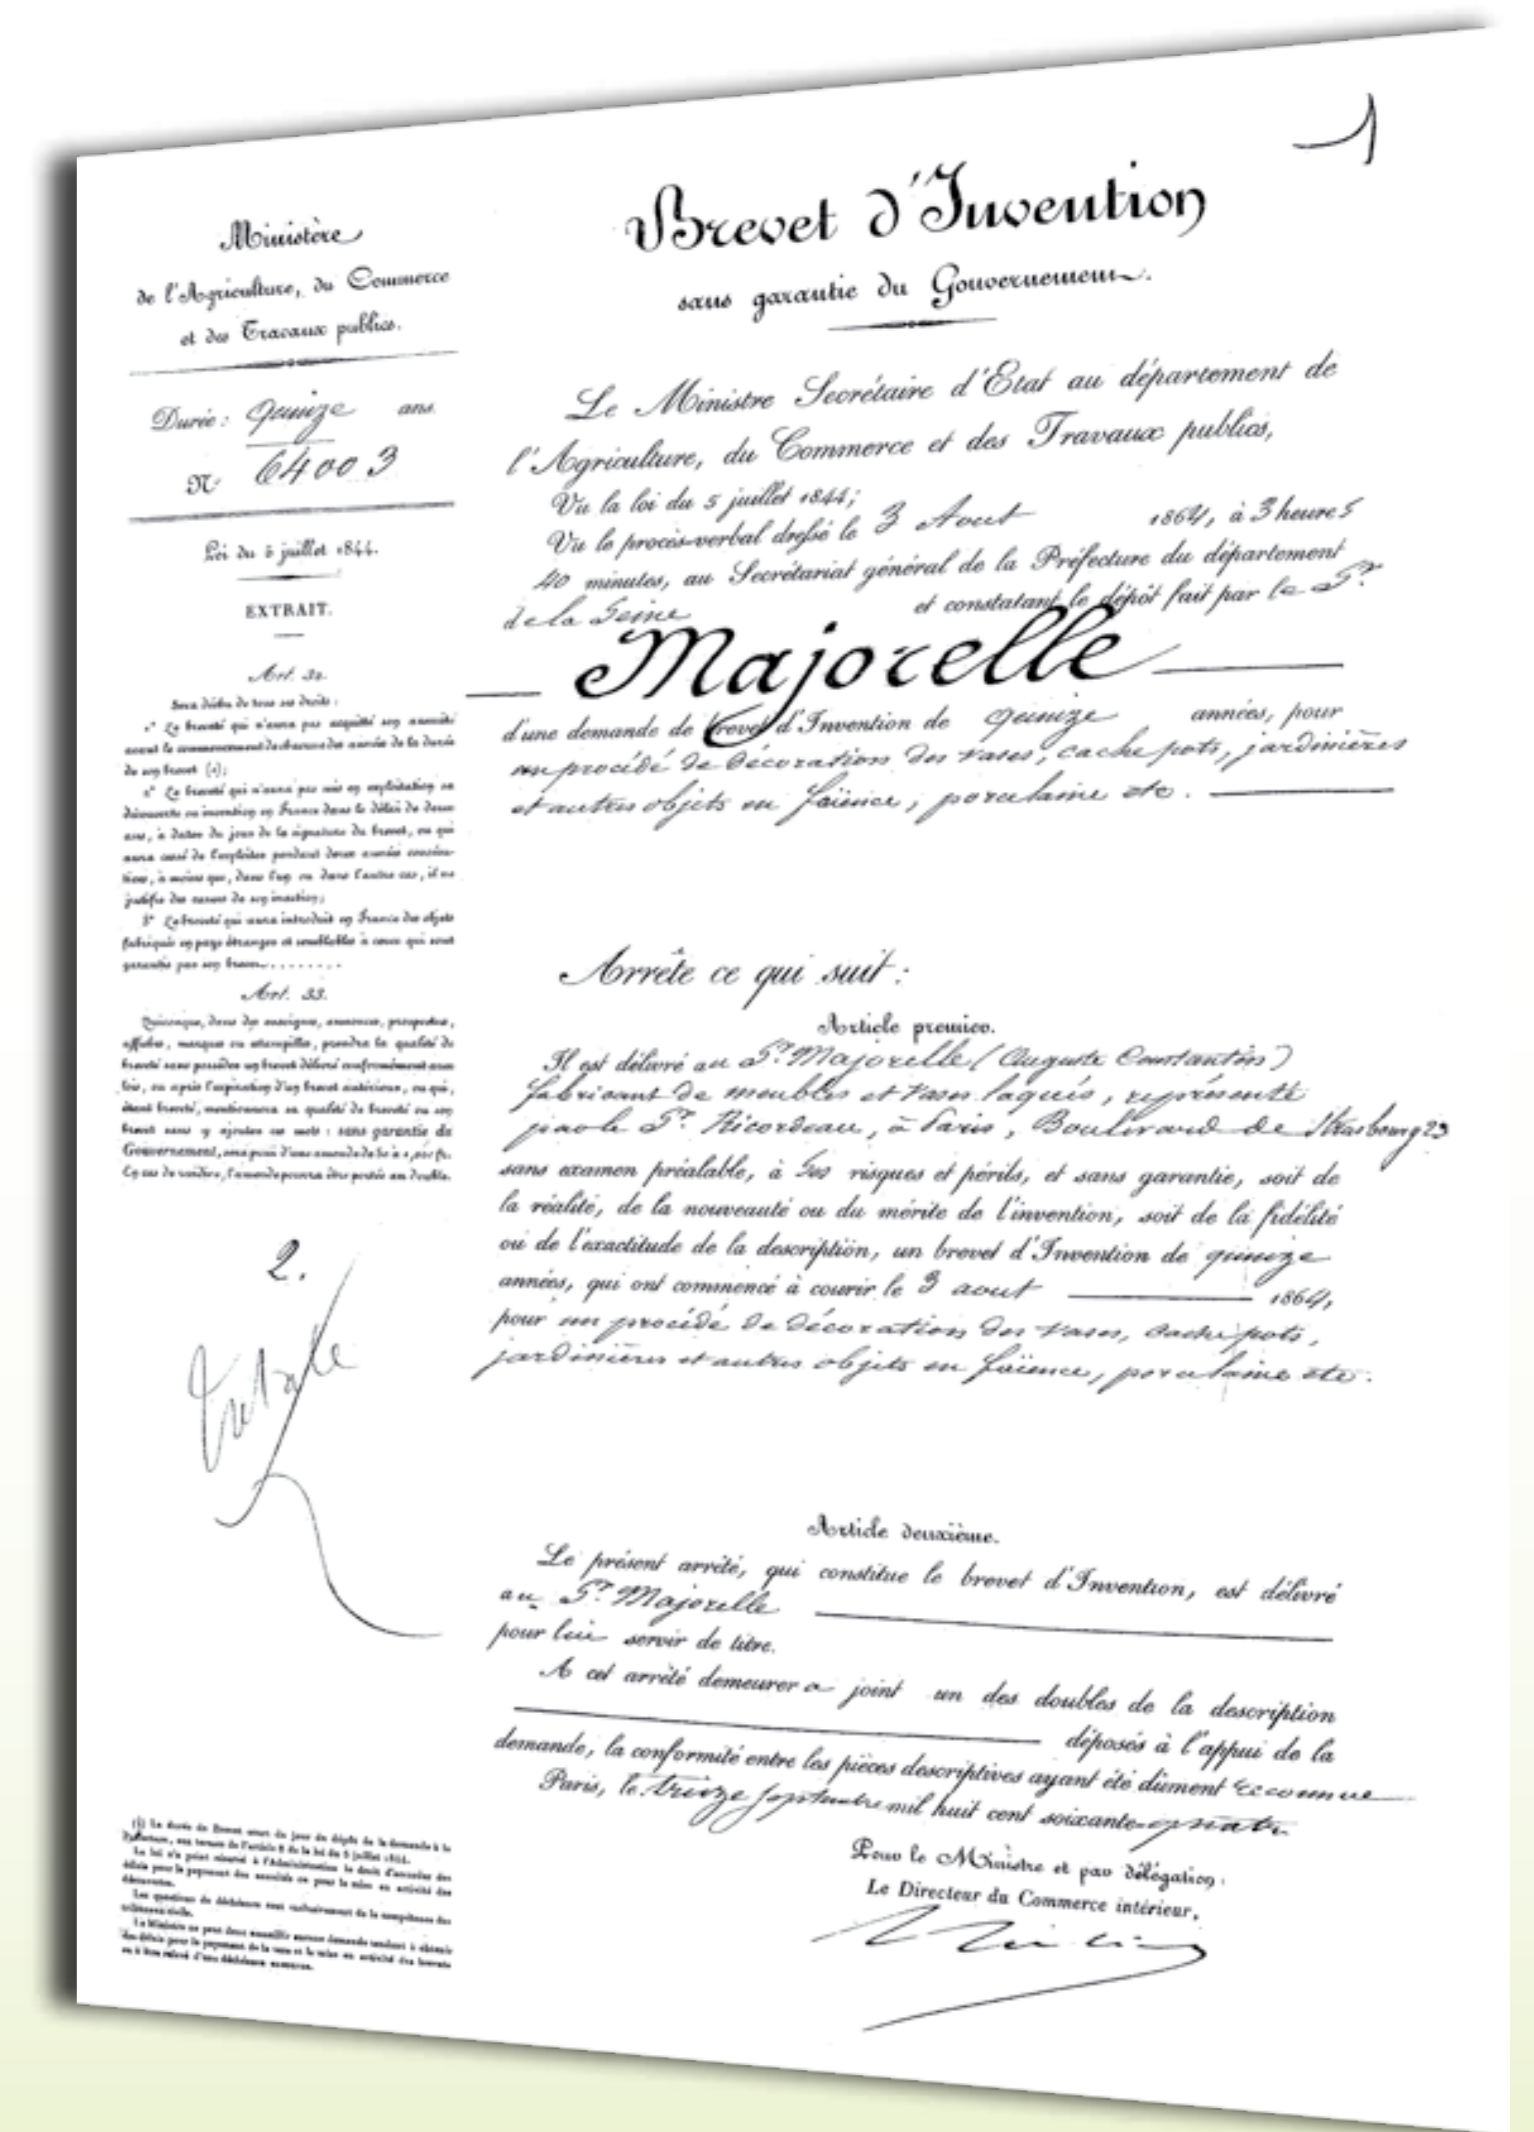 Brevet d'Invention
sans garantie du Gouvernement.
Ministère
de l'Agriculture, du Commerce
et des Travaux publics.
Durée : quinze ans.
N° 64003
Loi du 5 juillet 1844.
EXTRAIT.
Art. 32.
Sera déchu de tous ses droits :
1° Le breveté qui n'aura pas acquitté son annuité
avant le commencement de chacune des années de la durée
de son brevet (1);
2° Le breveté qui n'aura pas mis en exploitation sa
découverte ou invention en France dans le délai de deux
ans, à dater du jour de la signature du brevet, ou qui
aura cessé de l'exploiter pendant deux années consécu-
tives, à moins que, dans l'un ou dans l'autre cas, il ne
justifie des causes de son inaction;
3° Le breveté qui aura introduit en France des objets
fabriqués en pays étranger et semblables à ceux qui sont
garantis par son brevet........
Art. 33.
Quiconque, dans des enseignes, annonces, prospectus,
affiches, marques ou estampilles, prendra la qualité de
breveté sans posséder un brevet délivré conformément aux
lois, ou après l'expiration d'un brevet antérieur, ou qui,
étant breveté, mentionnera sa qualité de breveté ou son
brevet sans y ajouter ces mots : sans garantie du
Gouvernement, sera puni d'une amende de 50 à 1,000 fr.
En cas de récidive, l'amende pourra être portée au double.
2.
(1) La durée du Brevet court du jour du dépôt de la demande à la
Préfecture, aux termes de l'article 8 de la loi du 5 juillet 1844.
La loi n'a point réservé à l'Administration le droit d'accorder des
délais pour le payement des annuités ou pour la mise en activité des
découvertes.
Les questions de déchéance sont exclusivement de la compétence des
tribunaux civils.
Le Ministre ne peut donc accueillir aucune demande tendant à obtenir
des délais pour le payement de la taxe et la mise en activité des brevets
ou à être relevé d'une déchéance encourue.
Le Ministre Secrétaire d'Etat au département de
l'Agriculture, du Commerce et des Travaux publics,
Vu la loi du 5 juillet 1844;
Vu le procès-verbal dressé le 3 Aout 1864, à 3 heures
40 minutes, au Secrétariat général de la Préfecture du département
de la Seine et constatant le dépôt fait par le Sr.
Majorelle
d'une demande de brevet d'Invention de quinze années, pour
un procédé de décoration des vases, cache pots, jardinières
et autres objets en faïence, porcelaine etc.
Arrête ce qui suit :
Article premier.
Il est délivré au Sr. Majorelle (Auguste Constantin)
fabricant de meubles et vases laqués, représenté
par le Sr. Ricordeau, à Paris, Boulevard de Strasbourg 23
sans examen préalable, à ses risques et périls, et sans garantie, soit de
la réalité, de la nouveauté ou du mérite de l'invention, soit de la fidélité
ou de l'exactitude de la description, un brevet d'Invention de quinze
années, qui ont commencé à courir le 3 aout 1864,
pour un procédé de décoration des vases, cache pots,
jardinières et autres objets en faïence, porcelaine etc.
Article deuxième.
Le présent arrêté, qui constitue le brevet d'Invention, est délivré
au Sr. Majorelle
pour lui servir de titre.
A cet arrêté demeurera joint un des doubles de la description
déposés à l'appui de la
demande, la conformité entre les pièces descriptives ayant été dûment reconnue
Paris, le treize septembre mil huit cent soixante-quatre
Pour le Ministre et par délégation :
Le Directeur du Commerce intérieur,